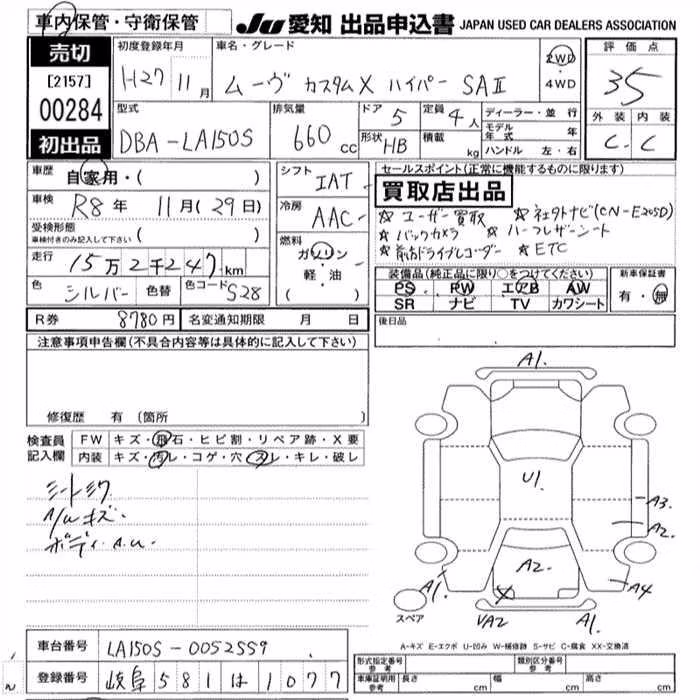 車内保管・守衛保管
JU 愛知 出品申込書 JAPAN USED CAR DEALERS ASSOCIATION
売切
[2157]
00284
初出品
初度登録年月
H27年11月
車名・グレード
ムーヴ カスタムX ハイパー SAⅡ
2WD
・
4WD
評価点
3.5
外装 内装
C C
型式
DBA-LA150S
排気量
660cc
ドア 5
形状 HB
定員 4人
積載 kg
ディーラー・並行
モデル年式 年
ハンドル 左・右
車歴 自家用・( )
車検 R8年 11月(29日)
受検形態
車検付きのみ記入して下さい ( )
走行 15万2千247km
色 シルバー 色替 色コード S28
シフト IAT
冷房 AAC
燃料
ガソリン
軽・油
( )
セールスポイント(正常に機能するものに限ります)
買取店出品
☆ユーザー買取 ☆社外ナビ(CN-E205D)
☆バックカメラ ☆ハーフレザーシート
☆前後ドライブレコーダー ☆ETC
装備品(純正品に限り○をつけてください)
PS PW エアB AW
SR ナビ TV カワシート
新車保証書
有・無
R券 8780円 名変通知期限 月 日
後日品
注意事項申告欄(不具合内容等は具体的に記入して下さい)
修復歴 有 (箇所 )
検査員記入欄
FW キズ・飛石・ヒビ割・リペア跡・X要
内装 キズ・汚レ・コゲ・穴・スレ・キレ・破レ
シートシワ
A/Wキズ.
ボディA.U.
A1.
U1.
A3.
A2.
A2.
A1.
A4
UA2
A1.
スペア
A-キズ E-エクボ U-凹み W-補修跡 S-サビ C-腐食 XX-交換済
車台番号 LA150S-0052559
登録番号 岐阜581は1077
形式指定番号 参考
類別区分番号 参考
車庫証明用 参考
長さ cm 幅 cm 高さ cm